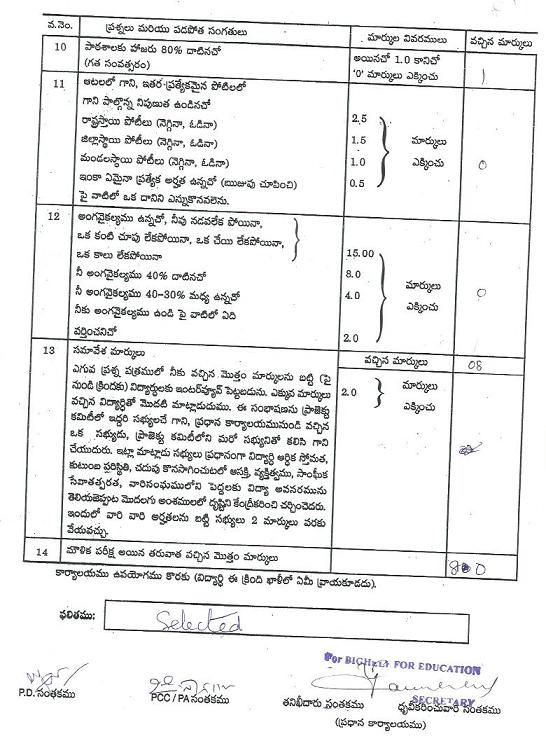 వ.నెం. ప్రశ్నలు మరియు పడపోత సంగతులు మార్కుల వివరములు వచ్చిన మార్కులు
10 పాఠశాలకు హాజరు 80% దాటినచో అయినచో 1.0 కానిచో
(గత సంవత్సరం) '0' మార్కులు ఎక్కించు 1
11 ఆటలలో గాని, ఇతర ప్రత్యేకమైన పోటీలలో
గాని పాల్గొన్న నిపుణుత ఉండినచో
రాష్ట్రస్థాయి పోటీలు (నెగ్గినా, ఓడినా) 2.5
జిల్లాస్థాయి పోటీలు (నెగ్గినా, ఓడినా) 1.5 మార్కులు
మండలస్థాయి పోటీలు (నెగ్గినా, ఓడినా) 1.0 ఎక్కించు 0
ఇంకా ఏమైనా ప్రత్యేక అర్హత ఉన్నచో (ఋజువు చూపించి) 0.5
పై వాటిలో ఒక దానిని ఎన్నుకొనవలెను.
12 అంగవైకల్యము ఉన్నచో, నీవు నడవలేక పోయినా,
ఒక కంటి చూపు లేకపోయినా, ఒక చేయి లేకపోయినా,
ఒక కాలు లేకపోయినా 15.00
నీ అంగవైకల్యము 40% దాటినచో 8.0 మార్కులు
నీ అంగవైకల్యము 40-30% మధ్య ఉన్నచో 4.0 ఎక్కించు 0
నీకు అంగవైకల్యము ఉండి పై వాటిలో ఏది
వర్తించనిచో 2.0
13 సమావేశ మార్కులు వచ్చిన మార్కులు 08
ఎగువ ప్రశ్న పత్రములో నీకు వచ్చిన మొత్తం మార్కులను బట్టి (పై
నుండి క్రిందకు) విద్యార్థులకు ఇంటర్వ్యూవ్ పెట్టబడును. ఎక్కువ మార్కులు 2.0 మార్కులు
వచ్చిన విద్యార్థితో మొదటి మాట్లాడుదుము. ఈ సంభాషణను ప్రాజెక్టు ఎక్కించు
కమిటీలో ఇద్దరి సభ్యులచే గాని, ప్రధాన కార్యాలయమునుండి వచ్చిన
ఒక సభ్యుడు, ప్రాజెక్టు కమిటీలోని మరో సభ్యునితో కలిసి గాని
చేయుదురు. ఇట్లా మాట్లాడు సభ్యులు ప్రధానంగా విద్యార్థి ఆర్థిక స్తోమత,
కుటుంబ పరిస్థితి, చదువు కొనసాగించుటలో ఆసక్తి, వ్యక్తిత్వము, సాంఘీక
సేవాతత్పరత, వారిసంఘములోని పెద్దలకు విద్యా అవసరమును
తెలియజెప్పుట మొదలగు అంశములలో దృష్టిని కేంద్రీకరించి చర్చించెదరు.
ఇందులో వారి వారి అర్హతలను బట్టి సభ్యులు 2 మార్కులు వరకు
వేయవచ్చు.
14 మౌళిక పరీక్ష అయిన తరువాత వచ్చిన మొత్తం మార్కులు
కార్యాలయము ఉపయోగము కొరకు (విద్యార్థి ఈ క్రింది ఖాళీలో ఏమీ వ్రాయకూడదు).
ఫలితము: Selected
For BIGHELP FOR EDUCATION
SECRETARY
P.D. సంతకము PCC / PA సంతకము తనిఖీదారు సంతకము ధృవీకరించువారి సంతకము
(ప్రధాన కార్యాలయము)